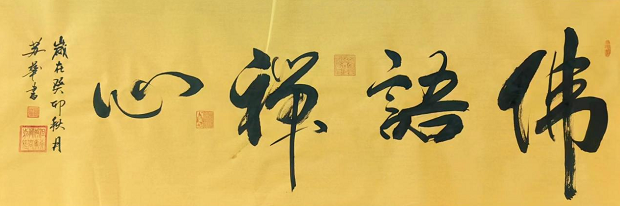 佛語禪心
歲在癸卯秋月
苏華書